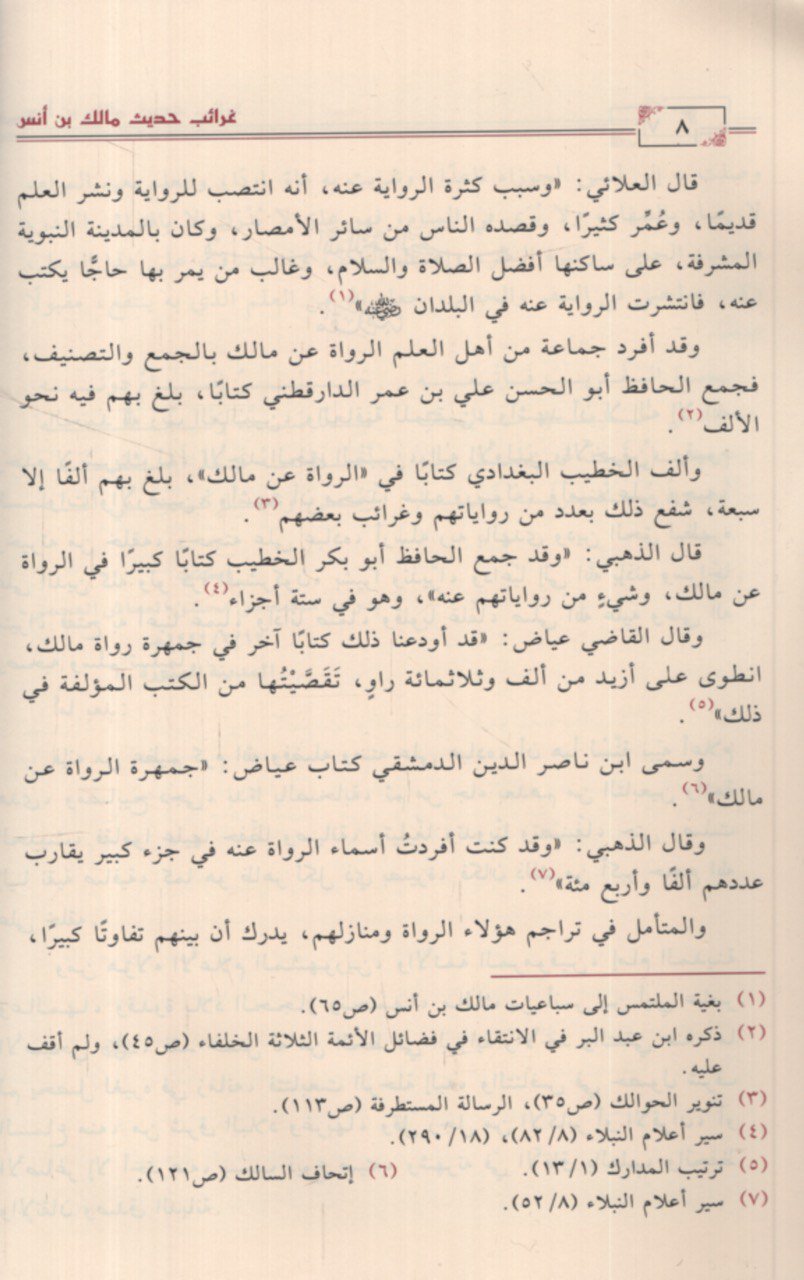 غرائب حديث مالك بن أنس
٨
قال العلائي: «وسبب كثرة الرواية عنه، أنه انتصب للرواية ونشر العلم
قديمًا، وعُمِّر كثيرًا، وقصده الناس من سائر الأمصار، وكان بالمدينة النبوية
المشرفة، على ساكنها أفضل الصلاة والسلام، وغالب من يمر بها حاجًّا يكتب
عنه، فانتشرت الرواية عنه في البلدان رضي الله عنه»(١).
وقد أفرد جماعة من أهل العلم الرواة عن مالك بالجمع والتصنيف،
فجمع الحافظ أبو الحسن علي بن عمر الدارقطني كتابًا، بلغ بهم فيه نحو
الألف(٢).
وألف الخطيب البغدادي كتابًا في «الرواة عن مالك»، بلغ بهم ألفًا إلا
سبعة، شفع ذلك بعدد من رواياتهم وغرائب بعضهم(٣).
قال الذهبي: «وقد جمع الحافظ أبو بكر الخطيب كتابًا كبيرًا في الرواة
عن مالك، وشيءٍ من رواياتهم عنه»، وهو في ستة أجزاء(٤).
وقال القاضي عياض: «قد أودعنا ذلك كتابًا آخر في جمهرة رواة مالك،
انطوى على أزيد من ألف وثلاثمائة راوٍ، تَقَصَّيْتُها من الكتب المؤلفة في
ذلك»(٥).
وسمى ابن ناصر الدين الدمشقي كتاب عياض: «جمهرة الرواة عن
مالك»(٦).
وقال الذهبي: «وقد كنت أفردتُ أسماء الرواة عنه في جزء كبير يقارب
عددهم ألفًا وأربع مئة»(٧).
والمتأمل في تراجم هؤلاء الرواة ومنازلهم، يدرك أن بينهم تفاوتًا كبيرًا،
(١) بغية الملتمس إلى سباعيات مالك بن أنس (ص٦٥).
(٢) ذكره ابن عبد البر في الانتقاء في فضائل الأئمة الثلاثة الخلفاء (ص٤٥)، ولم أقف
عليه.
(٣) تنوير الحوالك (ص٣٥)، الرسالة المستطرفة (ص١١٣).
(٤) سير أعلام النبلاء (٨/ ٨٢)، (١٨/ ٢٩٠).
(٥) ترتيب المدارك (١/ ١٣). (٦) إتحاف السالك (ص١٢١).
(٧) سير أعلام النبلاء (٨/ ٥٢).